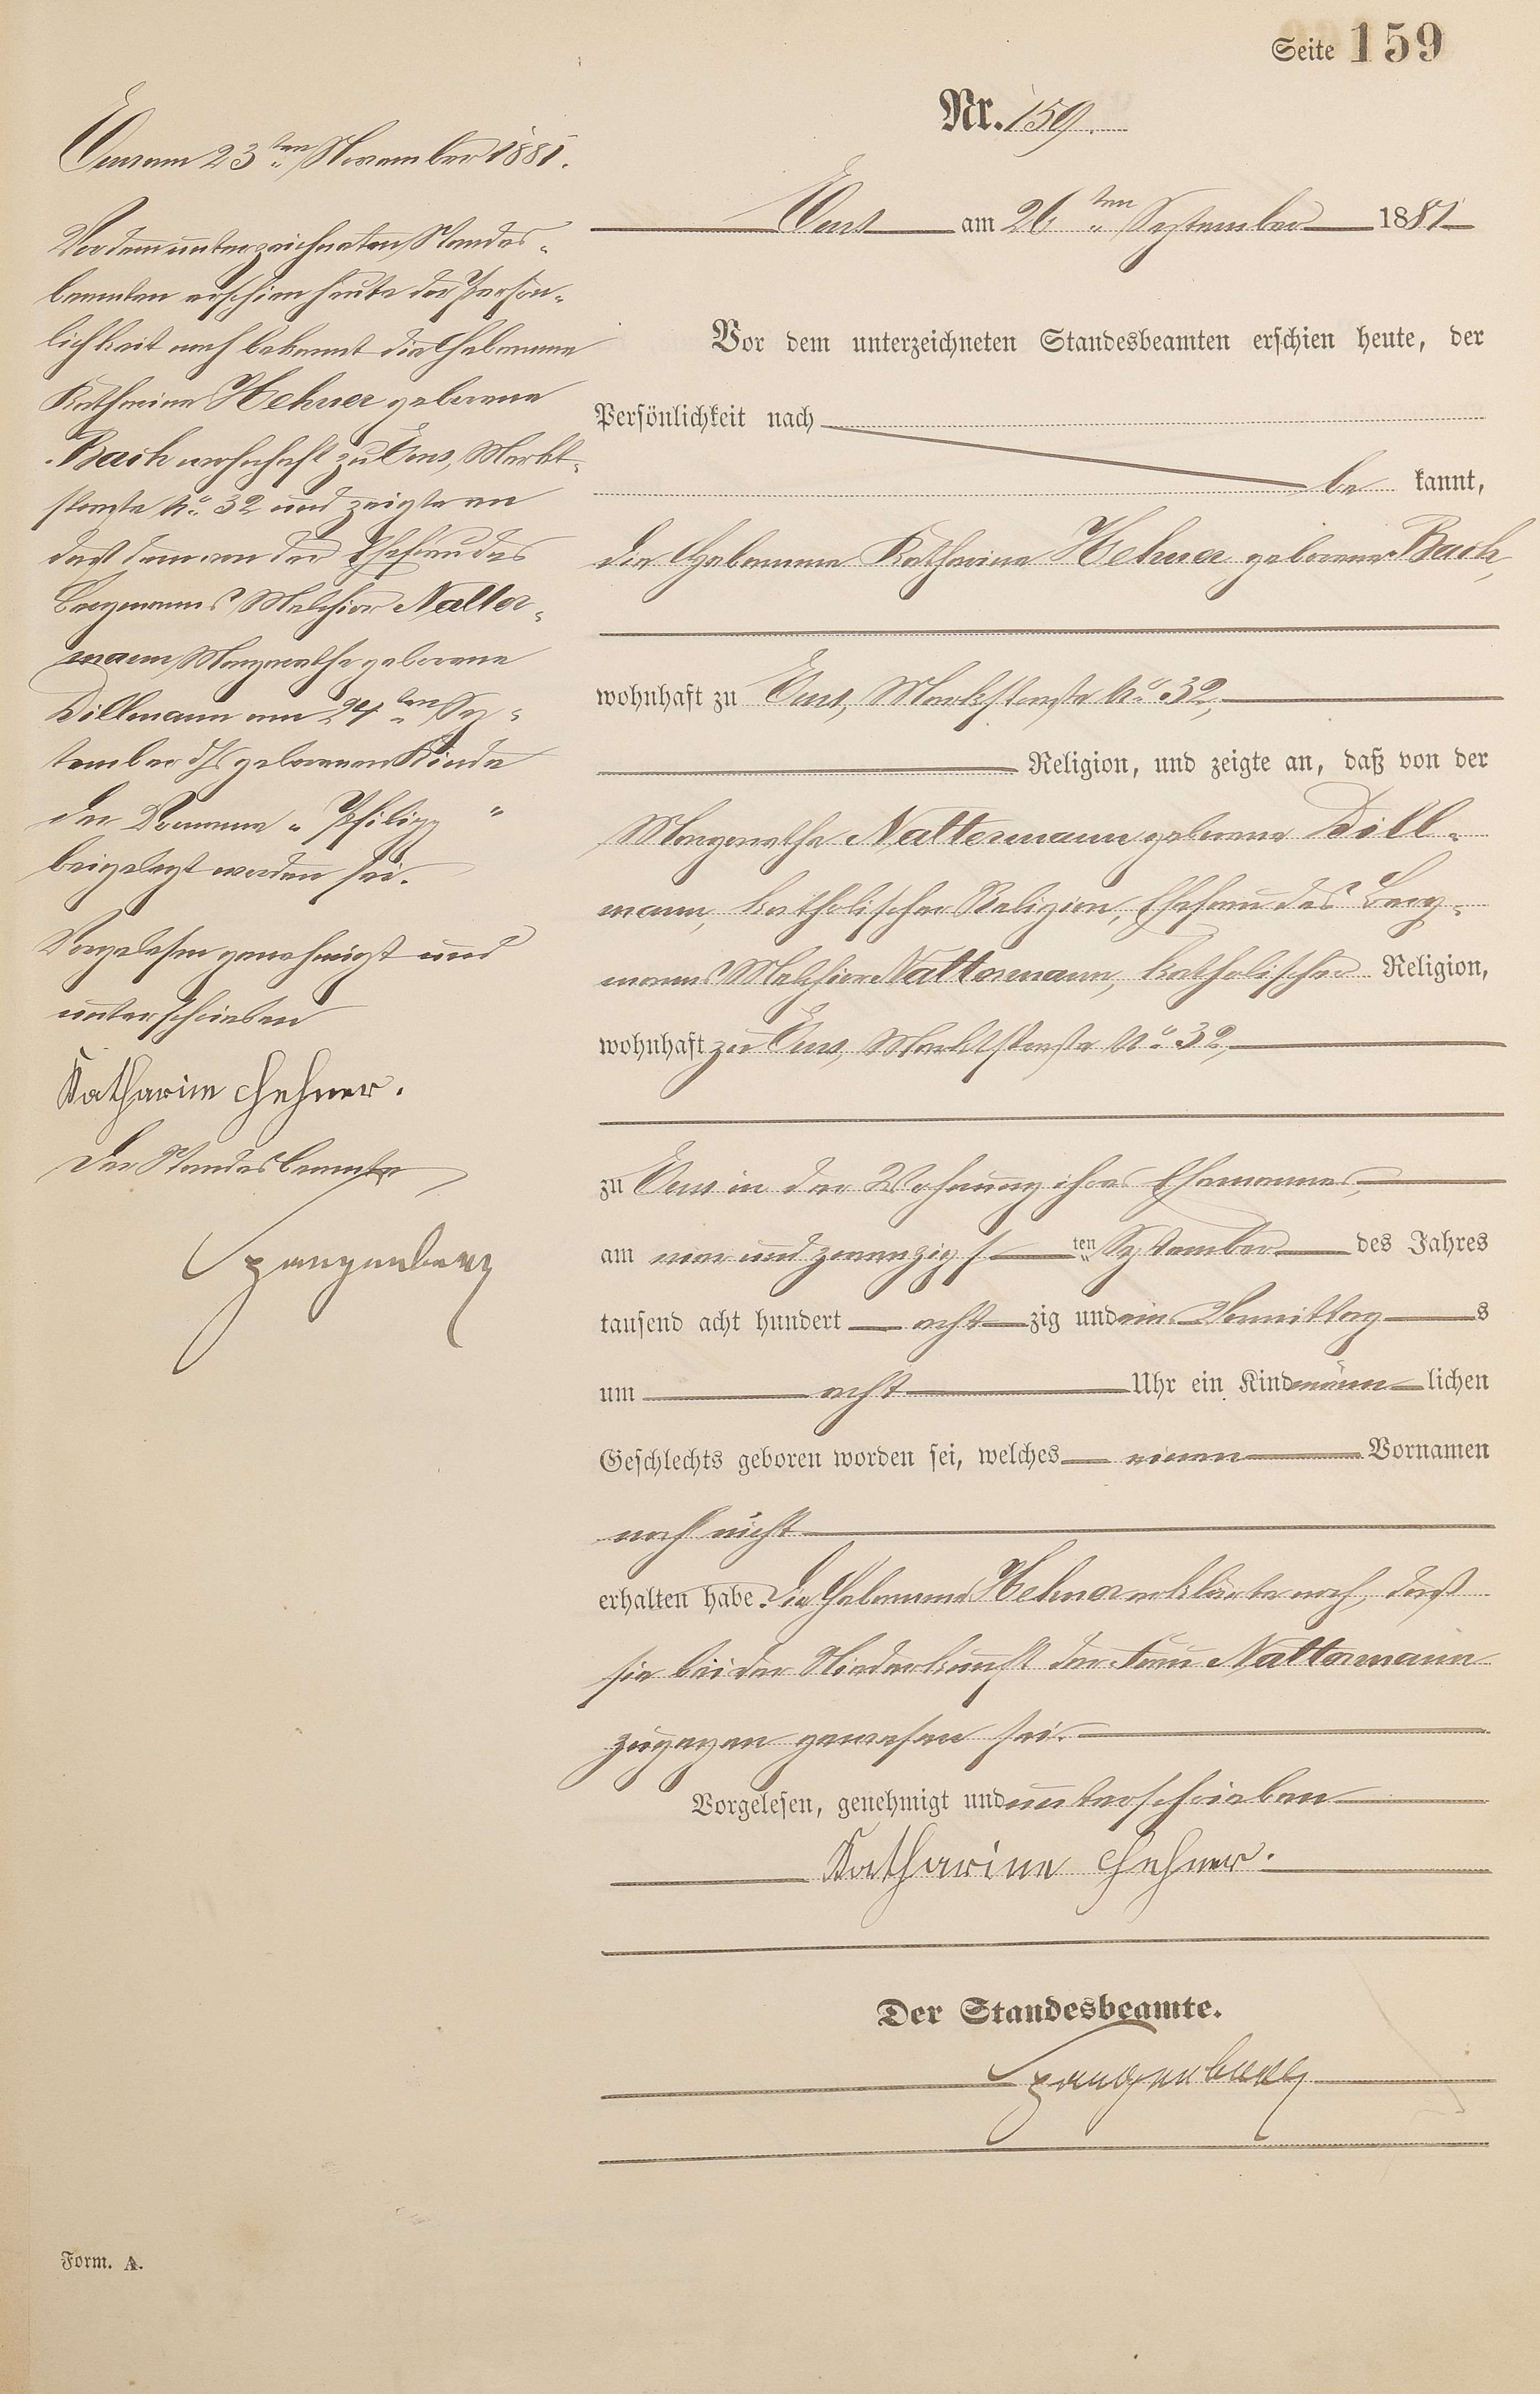 Seite 159
Nr. 159.
Ems am 26ten September 1881
Vor dem unterzeichneten Standesbeamten erschien heute, der
Persönlichkeit nach
be kannt,
die Hebamme Katharina Hehner geborene Bach,
wohnhaft zu Ems, Marktstraße No. 32,
Religion, und zeigte an, daß von der
Margarethe Nattermann geborene Dill-
mann, katholischer Religion, Ehefrau des Berg-
manns Melchior Nattermann, katholischer Religion,
wohnhaft zu Ems, Marktstraße No. 32,
zu Ems in der Wohnung ihres Ehemannes,
am vier und zwanzigsten September des Jahres
tausend acht hundert acht zig und ein Vormittags
um acht Uhr ein Kind männlichen
Geschlechts geboren worden sei, welches einen Vornamen
noch nicht
erhalten habe. Die Hebamme Hehner erklärte noch, daß
sie bei der Niederkunft der Frau Nattermann
zugegen gewesen sei.
Vorgelesen, genehmigt und unterschrieben
Katharine Hehner.
Der Standesbeamte.
Spangenberg
Ems am 23ten November 1881.
Vor dem unterzeichneten Standes-
beamten erschien heute der Persön-
lichkeit nach bekannt die Hebamme
Katharina Hehner geborene
Bach wohnhaft zu Ems, Markt-
straße No. 32 und zeigte an
daß dem von der Ehefrau des
Bergmanns Melchior Natter-
mann, Margarethe geborene
Dillmann am 24ten Sep-
tember d/Js geborenen Kinde
der Vorname „Philipp"
beigelegt worden sei.
Vorgelesen genehmigt und
unterschrieben
Katharine Hehner.
Der Standesbeamte
Spangenberg
Form. A.